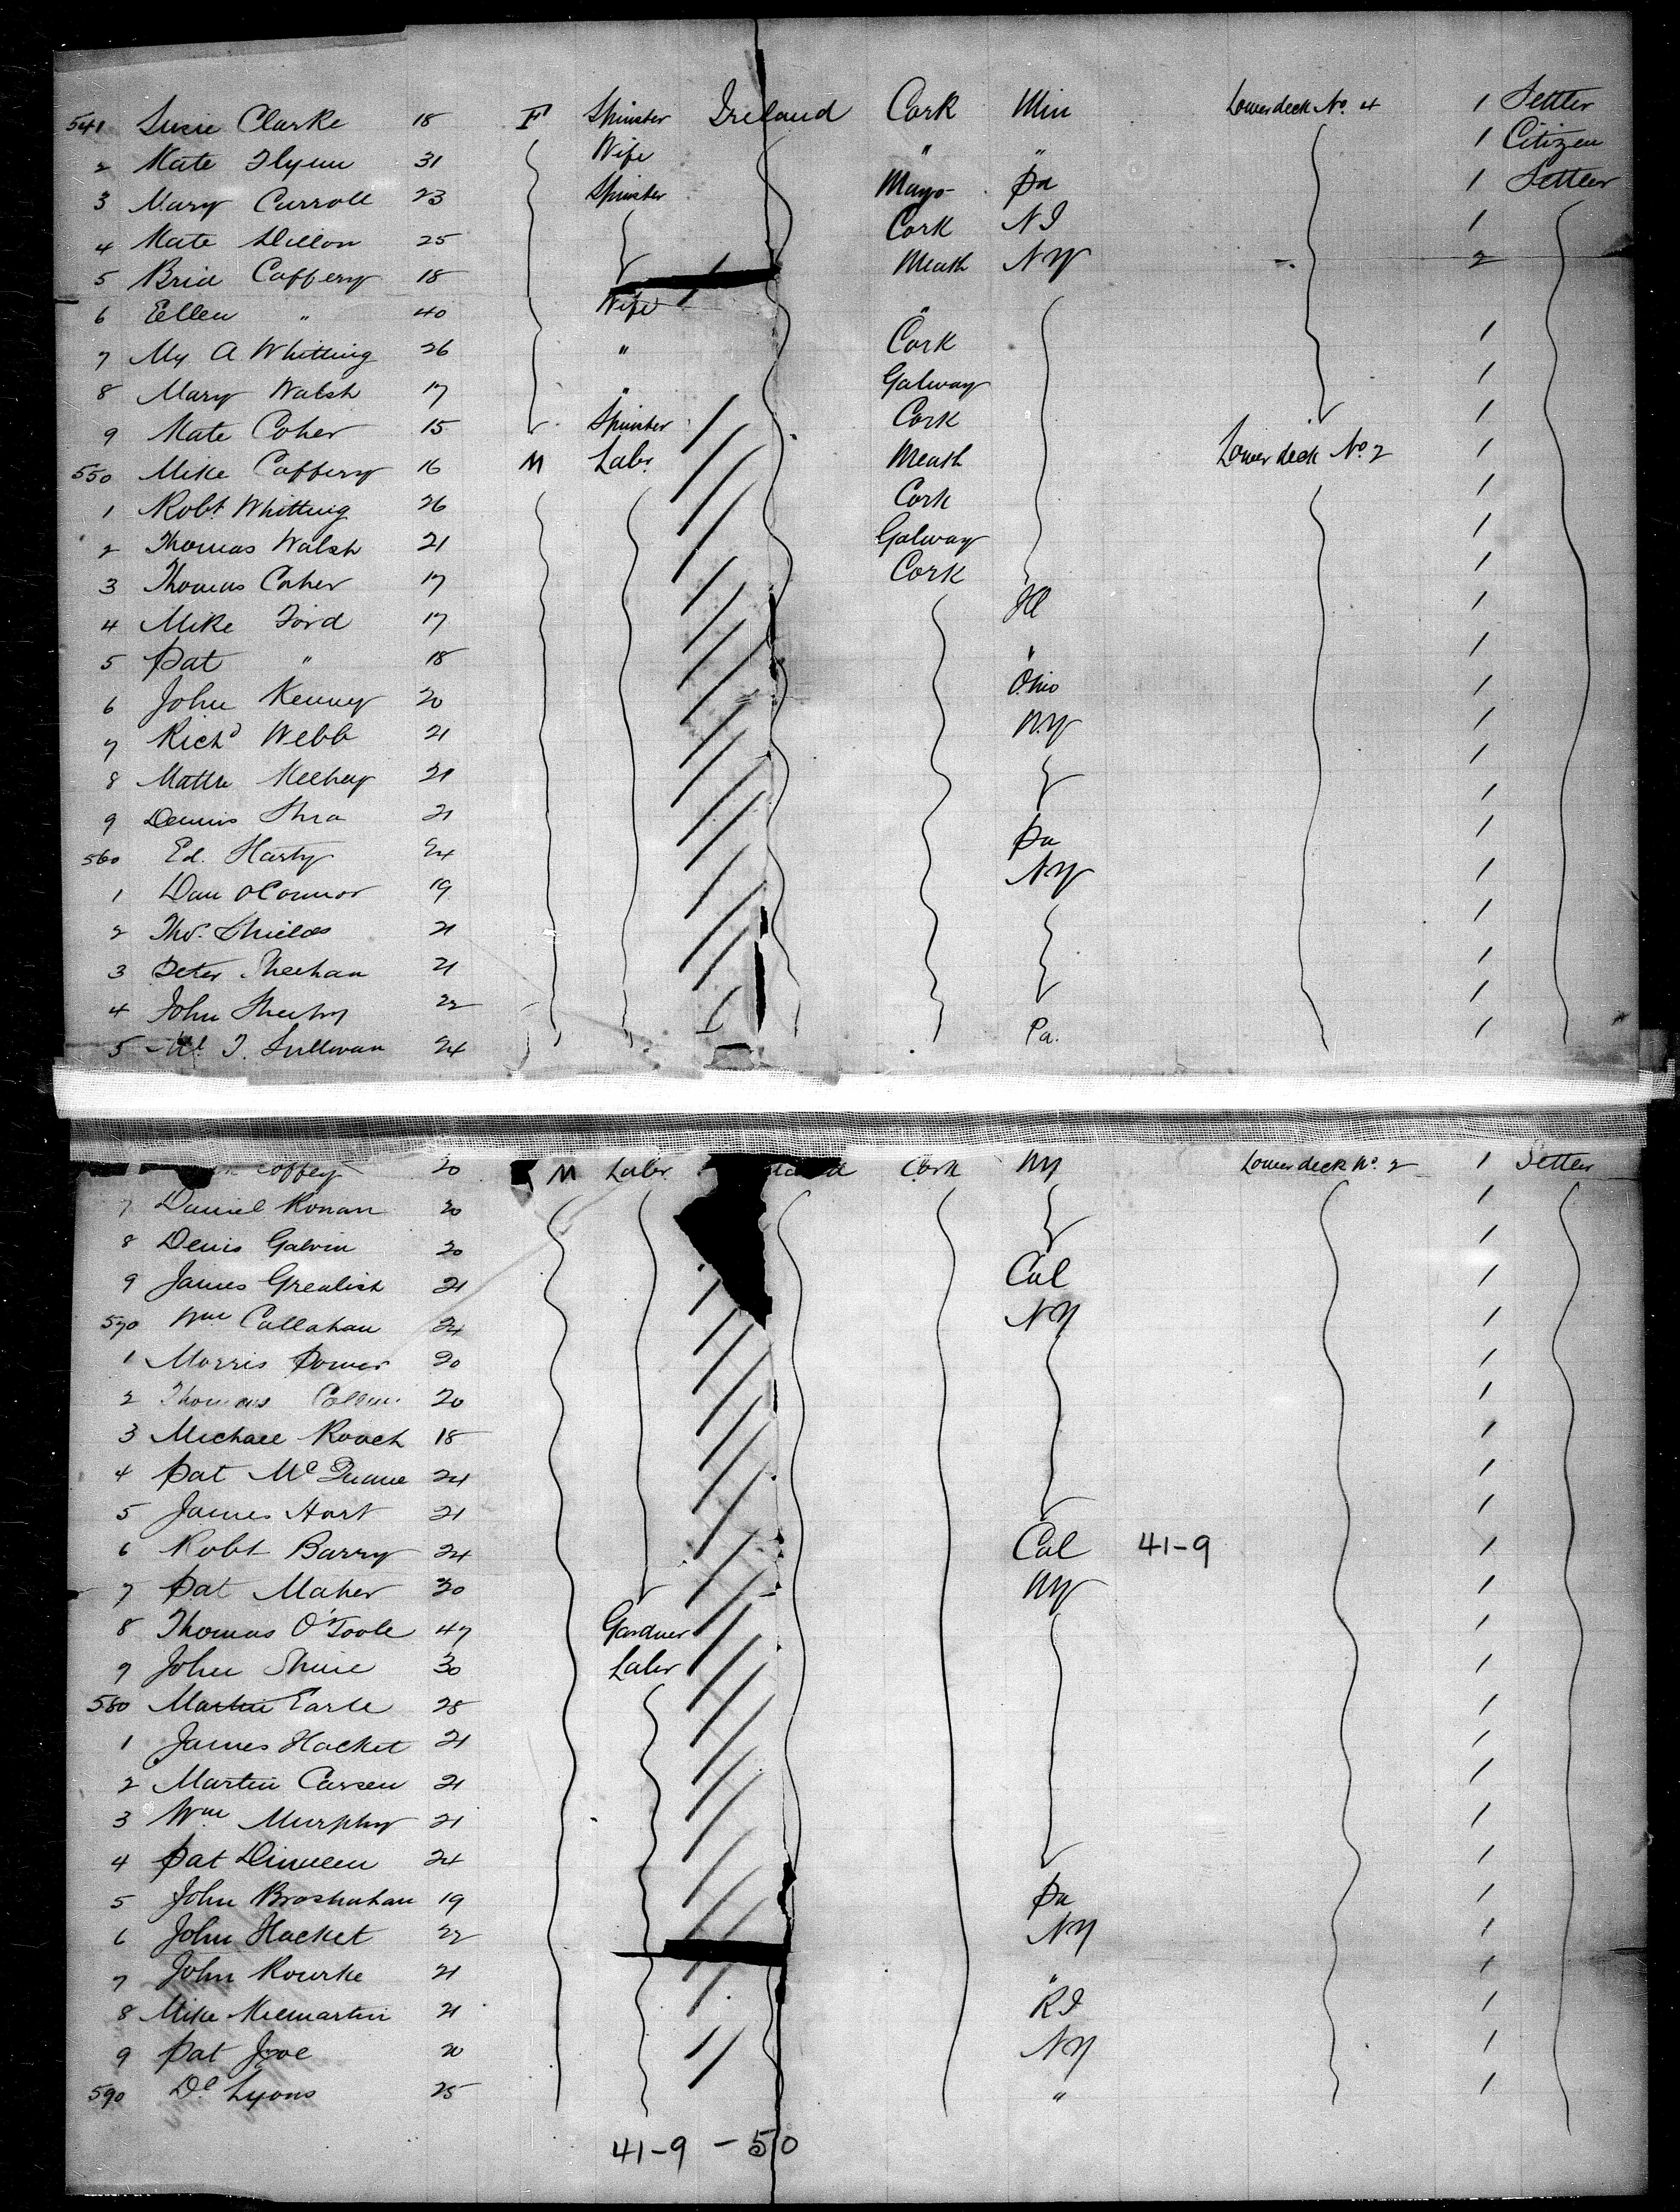 541 Susie Clarke 18 F Spinster Ireland Cork Min Lower deck No. 4 1 Settler
2 Kate Flynn 31 Wife " " 1 Citizen
3 Mary Carroll 23 Spinster Mayo Pa 1 Settler
4 Kate Dillon 25 Cork NJ 1
5 Brid Caffery 18 Meath NY 2
6 Ellen " 40 Wife "
7 My A Whitting 26 " Cork 1
8 Mary Walsh 17 " Galway 1
9 Kate Coher 15 Spinster Cork 1
550 Mike Caffery 16 M Labr. Meath Lower deck No. 2 1
1 Robt. Whitting 26 Cork 1
2 Thomas Walsh 21 Galway 1
3 Thomas Coher 17 Cork 1
4 Mike Ford 17 Ill 1
5 Pat " 18 " 1
6 John Kenny 20 Ohio 1
7 Richd Webb 21 N.Y 1
8 Matth 21 1
9 Dennis Shea 21 1
560 Ed. Harty 24 Pa 1
1 Dan OConnor 19 NY 1
2 Thos. Shields 21 1
3 Peter Sheehan 21 1
4 John Sheehy 22 1
5 Ml J. Sullivan 24 Pa. 1
Coffey 20 M Labr. Cork NY Lower deck No. 2 1 Settler
7 Daniel Ronan 20 1
8 Denis Galvin 20 1
9 James Grealish 21 Cal 1
570 Wm Callahan 24 NY 1
1 Morris Power 20 1
2 Thomas 20 1
3 Michael Roach 18 1
4 Pat Mc 24 1
5 James Hart 21 1
6 Robt Barry 24 Cal 41-9 1
7 Pat Maher 20 NY 1
8 Thomas O'Toole 47 Gardner 1
9 John Shine 30 Labr 1
580 Martin Earle 28 1
1 James Hacket 21 1
2 Martin 21 1
3 Wm Murphy 21 1
4 Pat Dinneen 24 1
5 John Brosnahan 19 Pa 1
6 John Hacket 22 NY 1
7 John Rourke 21 " 1
8 Mike Kilmartin 21 RI 1
9 Pat Joye 20 NY 1
590 Dl Lyons 25 " 1
41-9 - 50